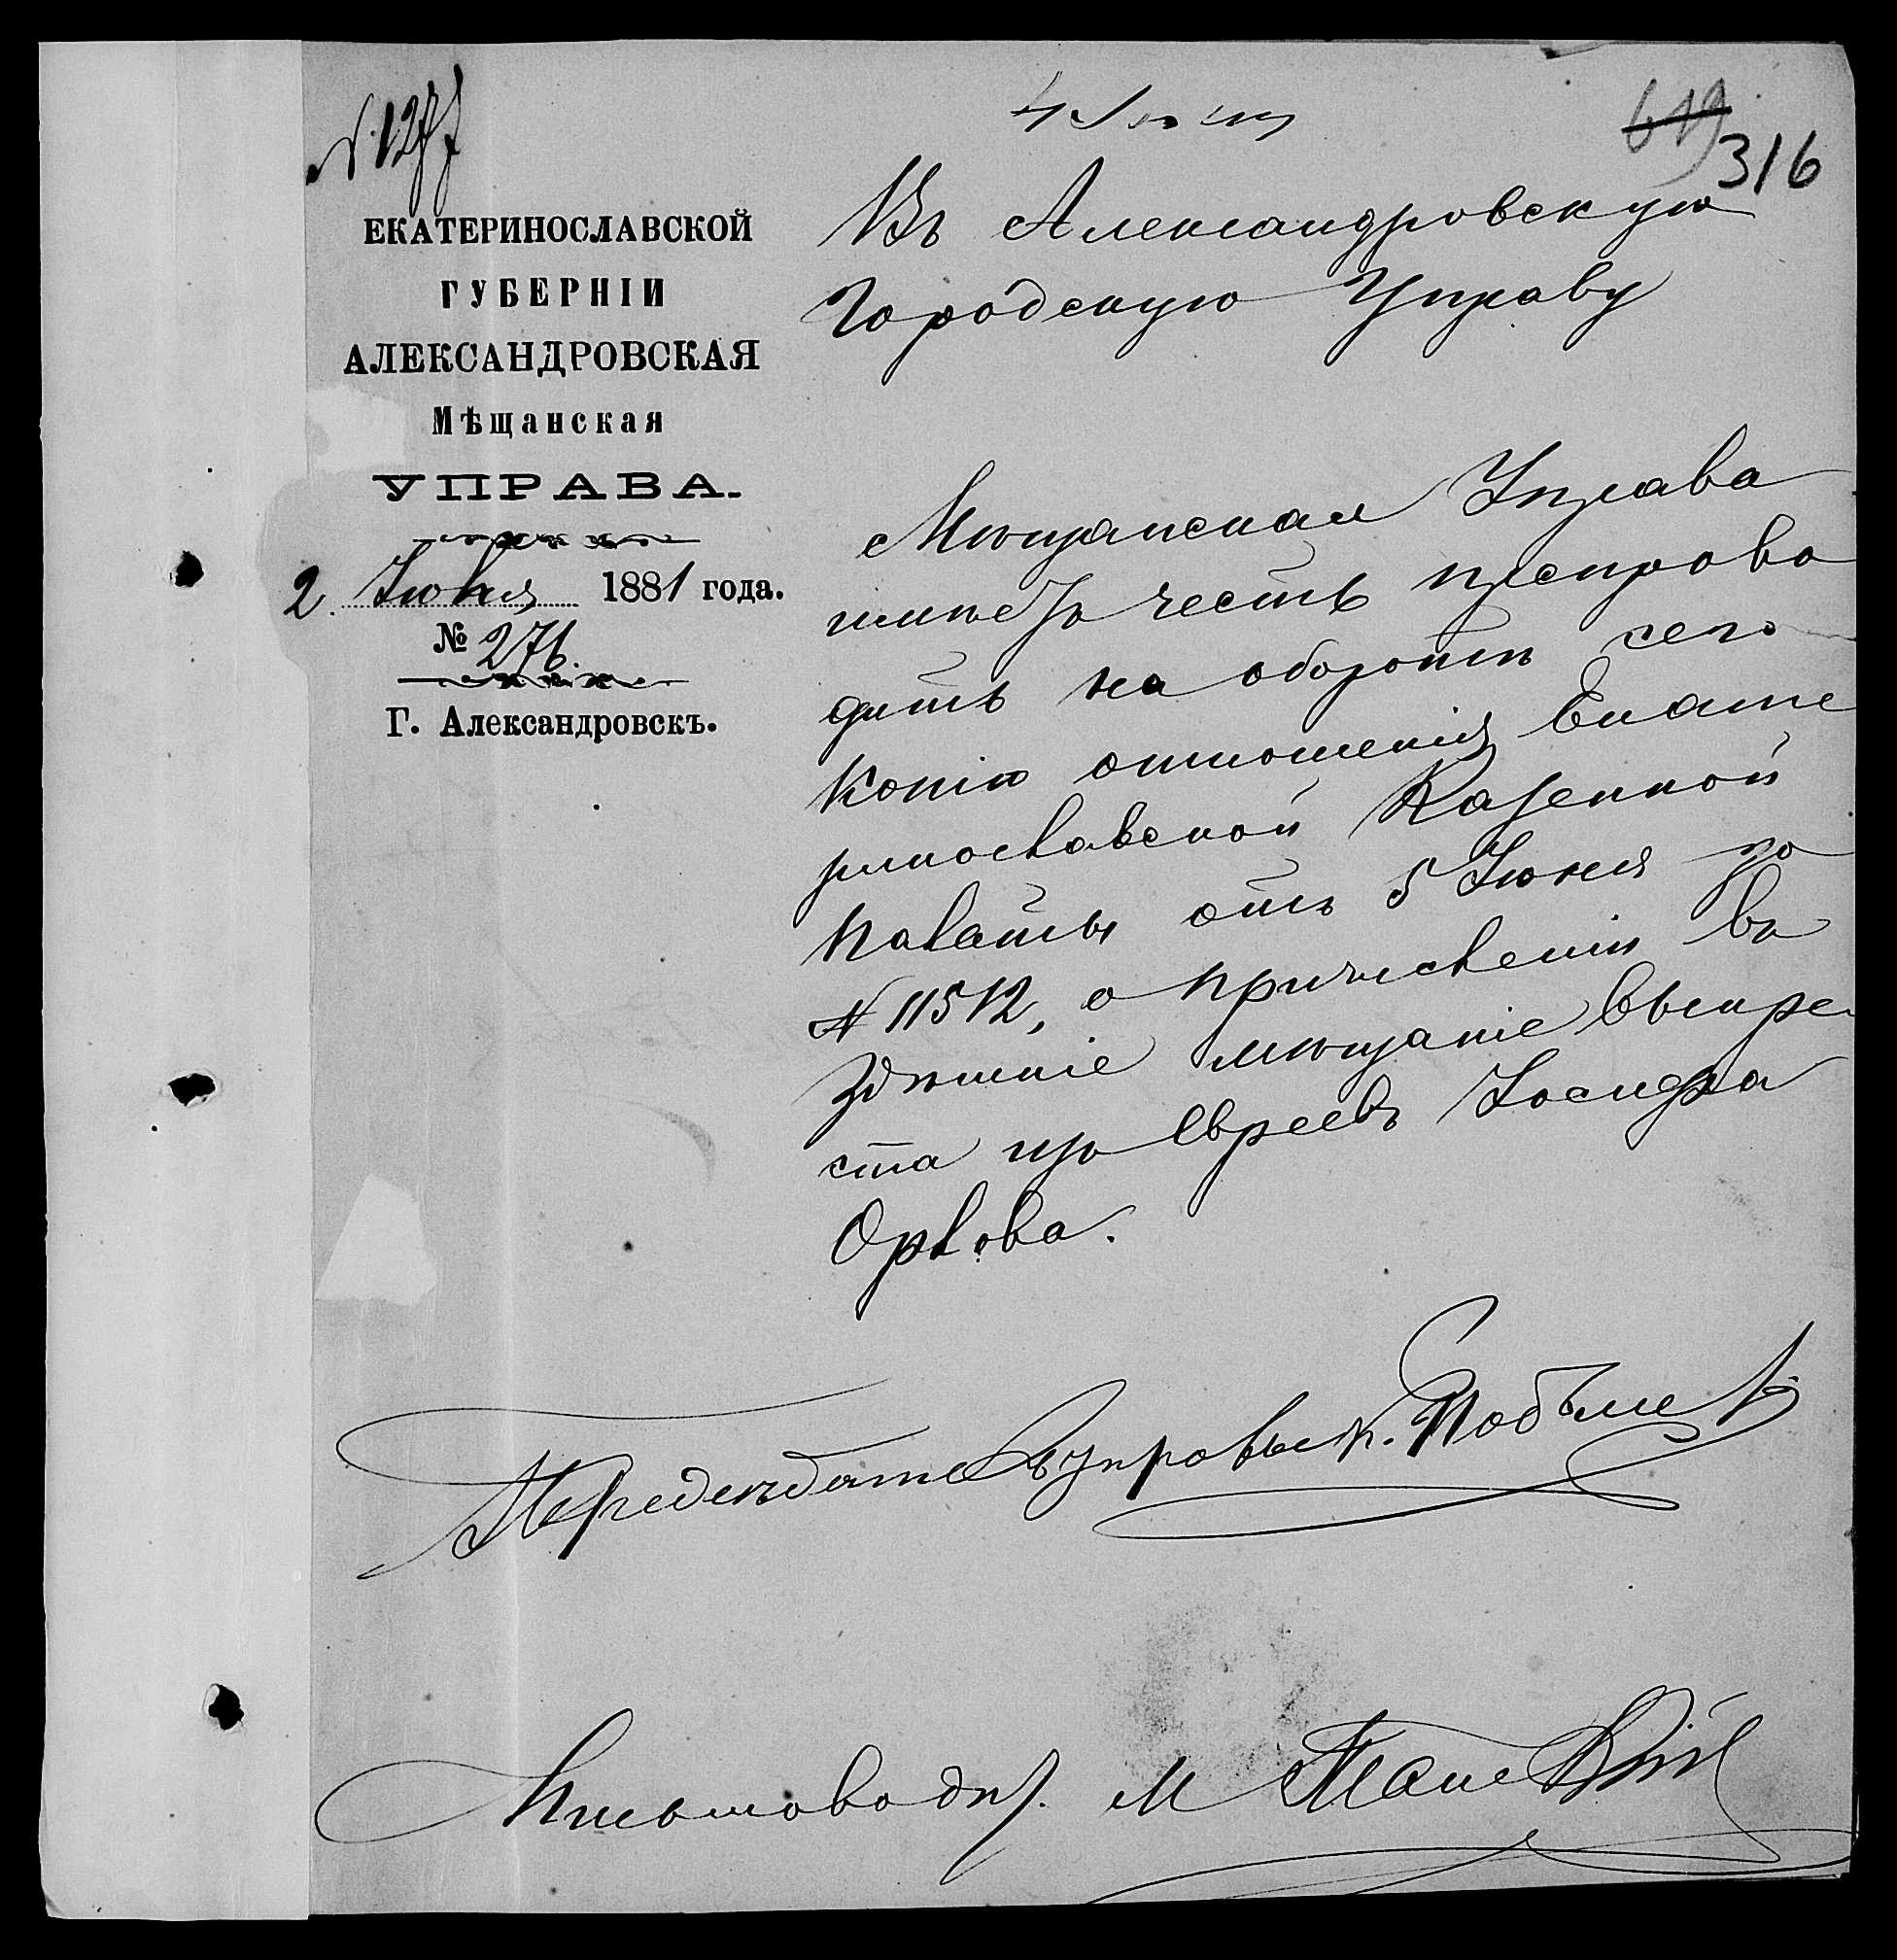 № 1277
4 Іюля
619
316
ЕКАТЕРИНОСЛАВСКОЙ
ГУБЕРНІИ
АЛЕКСАНДРОВСКАЯ
Мѣщанская
УПРАВА.
2 Іюля 1881 года.
№ 276.
Г. Александровскъ.
Въ Александровскую
Городскую Управу
Мѣщанская Управа
имѣетъ честь препрово
дить на оборотѣ сего
копію отношенія Екате
ринославской Казенной
Палаты отъ 5 Іюня за
№ 11512, о причисленіи въ
здѣшніе мѣщане выкре
ста изъ Евреевъ Іосифа
Орлова.
Предсѣдатель управы К.
Письмоводит. М